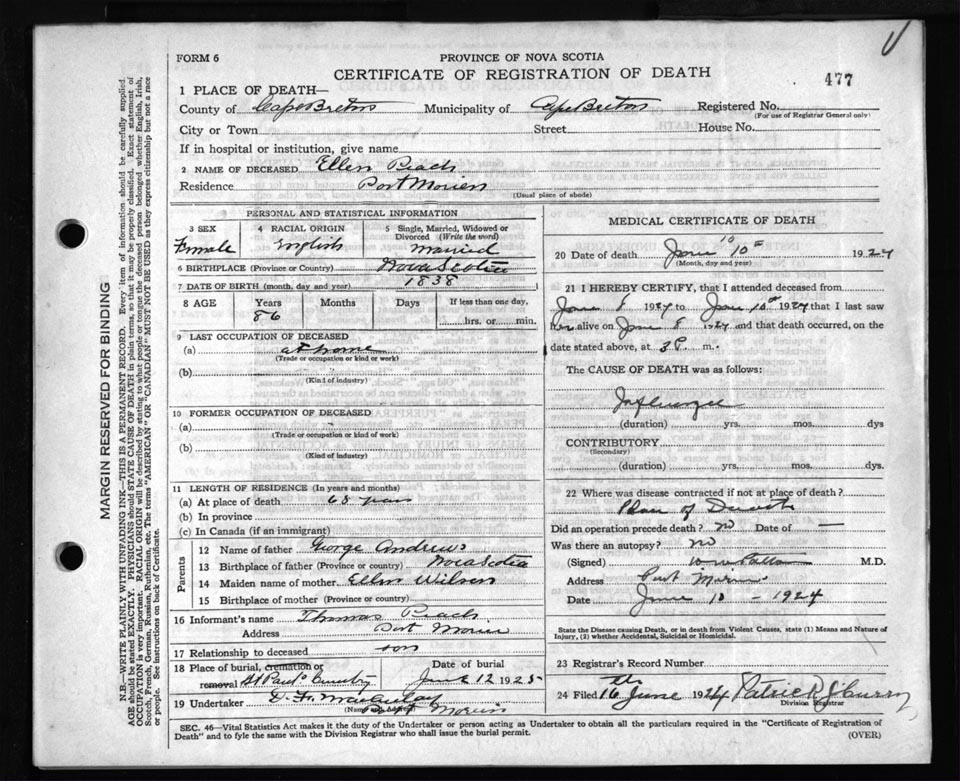 FORM 6
PROVINCE OF NOVA SCOTIA
CERTIFICATE OF REGISTRATION OF DEATH
477
1 PLACE OF DEATH—
County of Cape Breton Municipality of Cape Breton Registered No.
(For use of Registrar General only)
City or Town Street House No.
If in hospital or institution, give name
2 NAME OF DECEASED Ellen Peach
Residence Port Morien
(Usual place of abode)
PERSONAL AND STATISTICAL INFORMATION
3 SEX 4 RACIAL ORIGIN 5 Single, Married, Widowed or Divorced (Write the word)
Female English Married
6 BIRTHPLACE (Province or Country) Nova Scotia
7 DATE OF BIRTH (month, day and year) 1838
8 AGE Years Months Days If less than one day,
86 hrs. or min.
9 LAST OCCUPATION OF DECEASED
(a) at home
(Trade or occupation or kind or work)
(b)
(Kind of industry)
10 FORMER OCCUPATION OF DECEASED
(a)
(Trade or occupation or kind of work)
(b)
(Kind of industry)
11 LENGTH OF RESIDENCE (In years and months)
(a) At place of death 68 years
(b) In province
(c) In Canada (if an immigrant)
Parents
12 Name of father George Andrews
13 Birthplace of father (Province or country) Nova Scotia
14 Maiden name of mother Ellen Wilson
15 Birthplace of mother (Province or country)
16 Informant's name Thomas Peach
Address Port Morien
17 Relationship to deceased son
18 Place of burial, cremation or removal St Paul's Date of burial June 12 1925
19 Undertaker
(Name and Address) Port Morien
MEDICAL CERTIFICATE OF DEATH
10
20 Date of death June 10th 1924
(Month, day and year)
21 I HEREBY CERTIFY, that I attended deceased from
June 8 1924 to June 10th 1924 that I last saw
her alive on June 8 1924 and that death occurred, on the
date stated above, at 3 P. m.
The CAUSE OF DEATH was as follows:
Influenza
(duration) yrs. mos. dys
CONTRIBUTORY
(Secondary)
(duration) yrs. mos. ds.
22 Where was disease contracted if not at place of death?
Place of Death
Did an operation precede death? no Date of —
Was there an autopsy? no
(Signed) M.D.
Address Port Morien
Date June 10 - 1924
State the Disease causing Death, or in death from Violent Causes, state (1) Means and Nature of
Injury, (2) whether Accidental, Suicidal or Homicidal.
23 Registrar's Record Number
24 Filed 16th June 1924 Patrick J Curry
Division Registrar
SEC. 46—Vital Statistics Act makes it the duty of the Undertaker or person acting as Undertaker to obtain all the particulars required in the "Certificate of Registration of
Death" and to fyle the same with the Division Registrar who shall issue the burial permit.
(OVER)
MARGIN RESERVED FOR BINDING
N.B.—WRITE PLAINLY WITH UNFADING INK—THIS IS A PERMANENT RECORD. Every item of information should be carefully supplied.
AGE should be stated EXACTLY. PHYSICIANS should STATE CAUSE OF DEATH in plain terms, so that it may be properly classified. Exact statement of
OCCUPATION is very important. RACIAL ORIGIN will be described by stating to what people or tongue the deceased person belonged whether English, Irish,
Scotch, French, German, Russian, Ruthenian, etc. The terms "AMERICAN" OR "CANADIAN" MUST NOT BE USED as they express citizenship but not a race
or people. See instructions on back of Certificate.